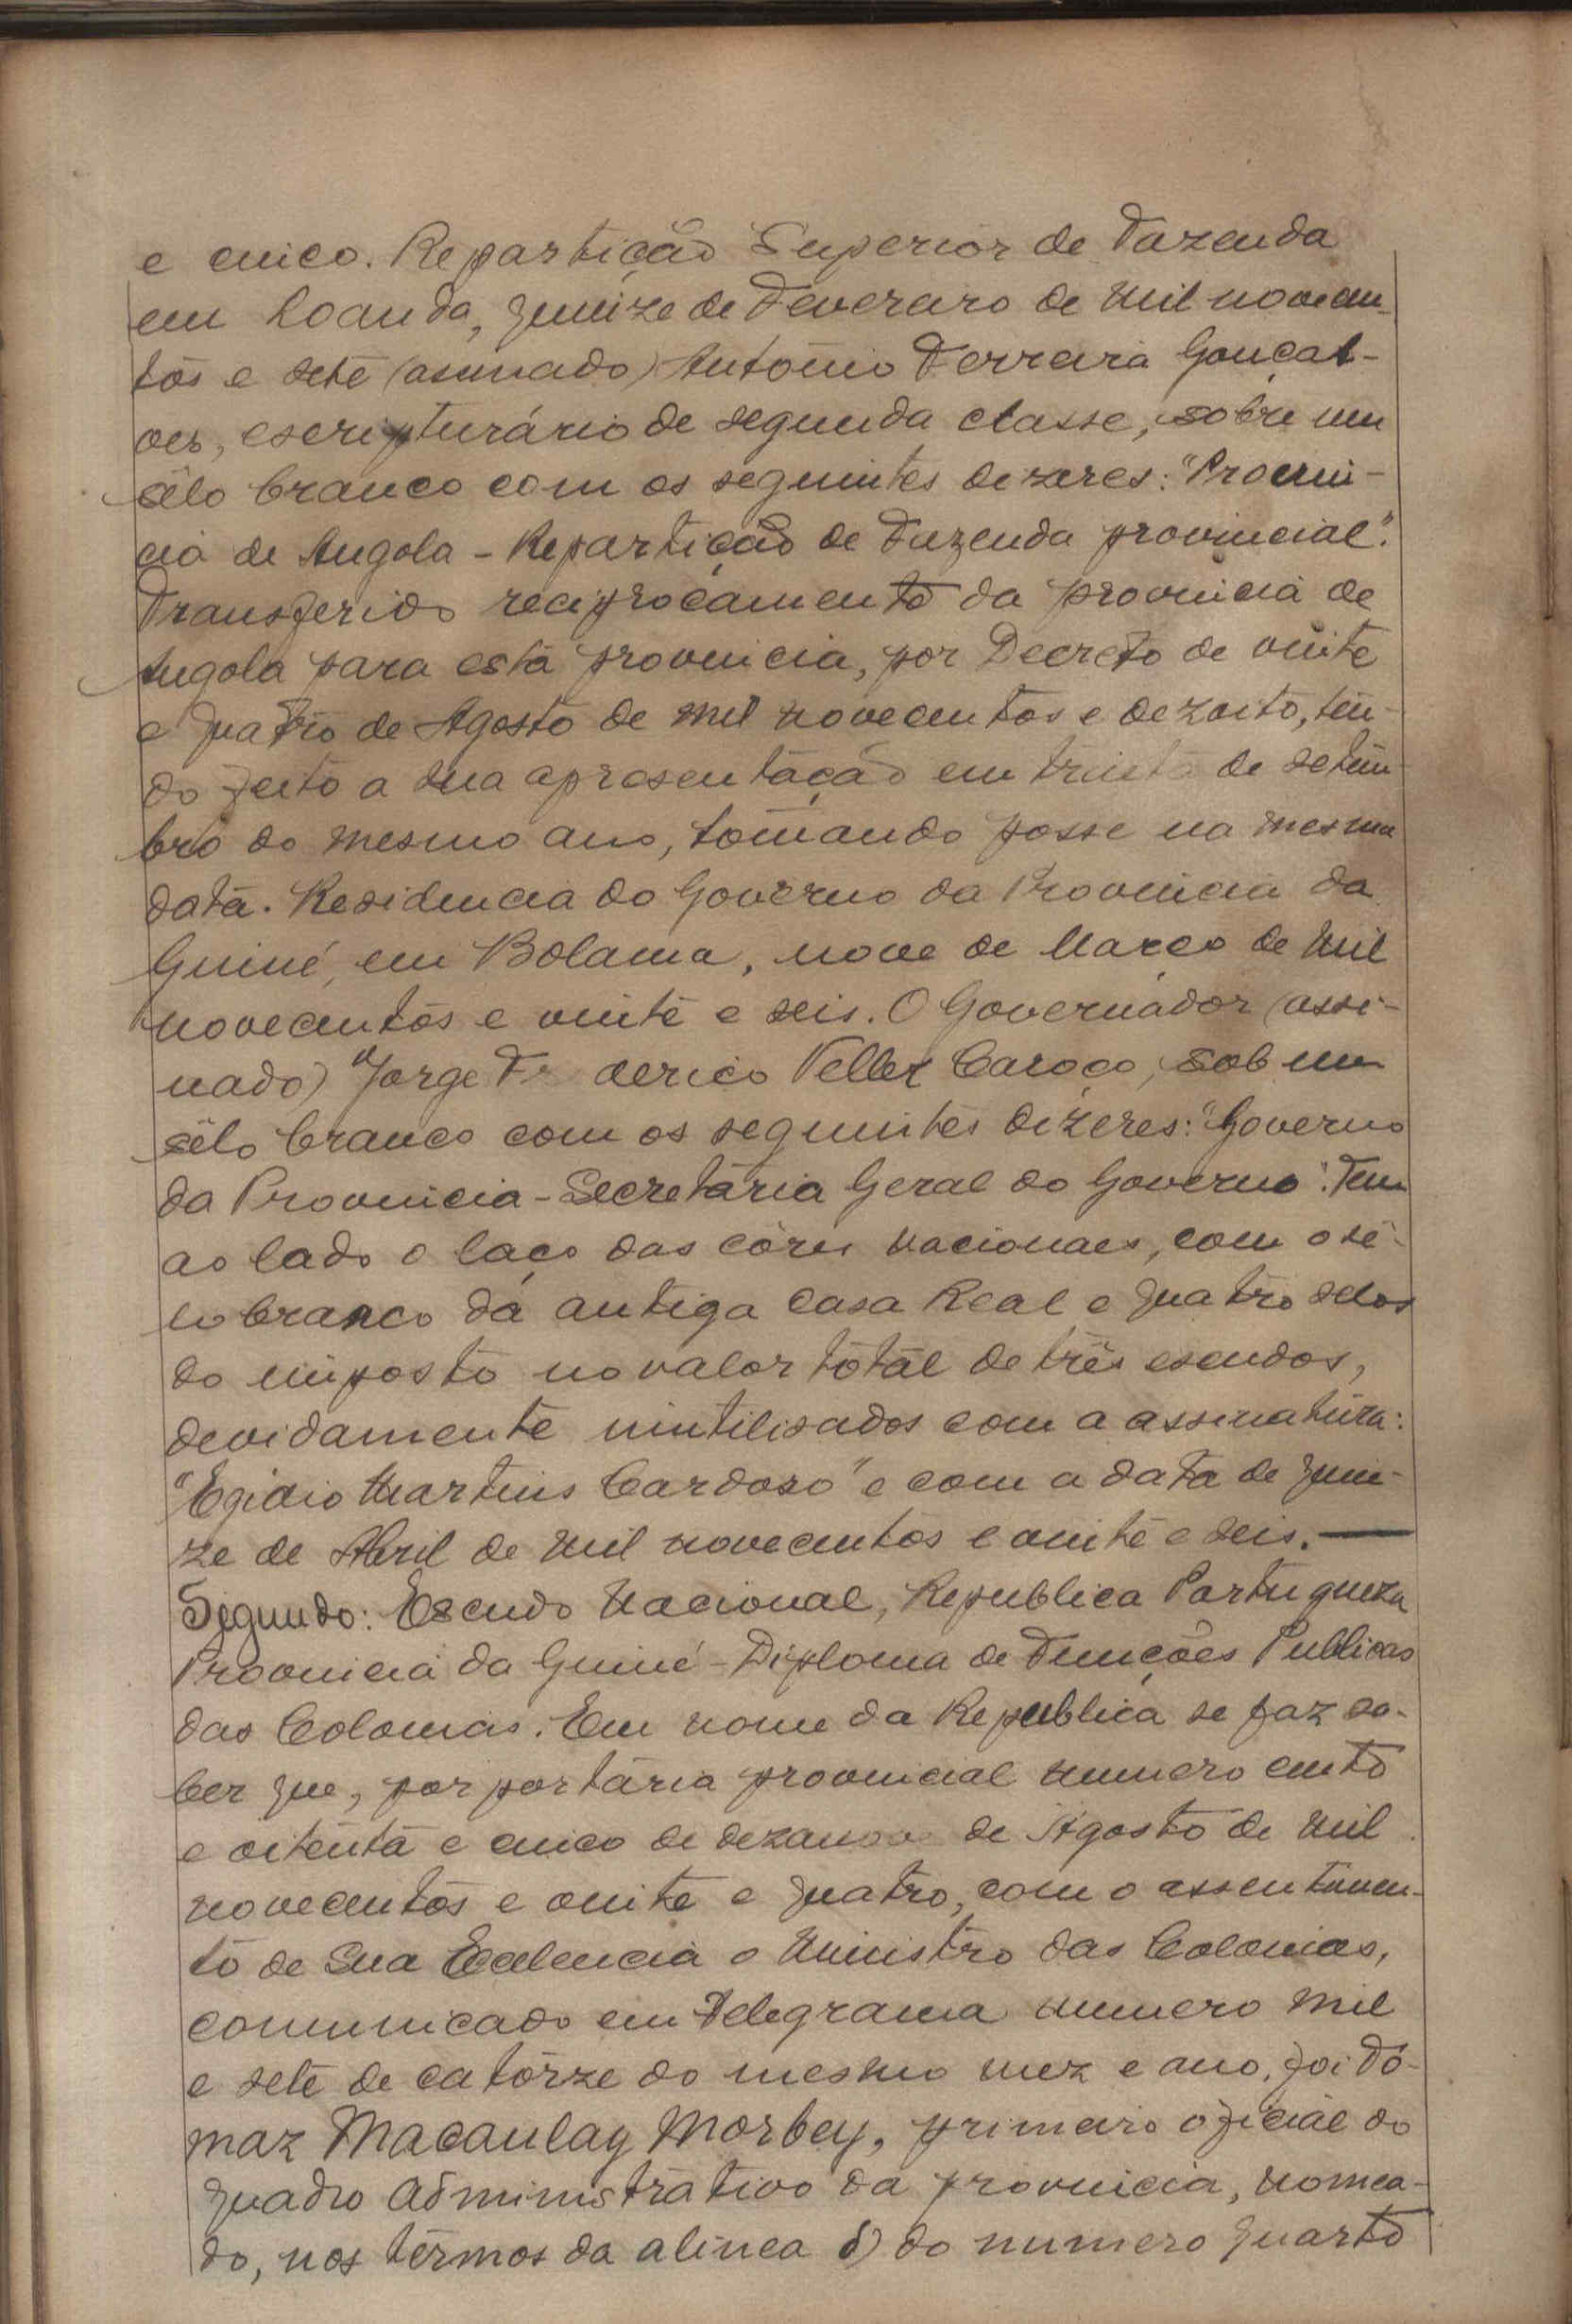 e cinco. Repartição Superior de Fazenda
em Loanda, quinze de Fevereiro de mil novecen-
tos e sete (assinado) António Ferreira Gonçal-
ves, escripturário de segunda classe, sobre um
sêlo branco com os seguintes dizeres: "Provin-
cia de Angola - Repartição de Fazenda provincial".
Transferido reciprocamente da provincia de
Angola para esta provincia, por Decreto de vinte
e quatro de Agosto de mil novecentos e dezoito, ten-
do feito a sua apresentação em trinta de setem-
bro do mesmo ano, tomando posse na mesma
data. Residencia do Governo da Provincia da
Guiné, em Bolama, nove de Março de mil
novecentos e vinte e seis. O Governador (assi-
nado) "Jorge Frederico Vellez Caroço, sob um
sêlo branco com os seguintes dizeres: "Governo
da Provincia - Secretaria Geral do Governo". Tem
ao lado o laço das côres nacionaes, com o sê-
lo branco da antiga Casa Real e quatro selos
do imposto no valor total de três escudos,
devidamente inutilisados com a assinatura:
"Egidio Martins Cardoso" e com a data de quin-
ze de Abril de mil novecentos e vinte e seis. —
Segundo: Escudo Nacional, Republica Portugueza
Provincia da Guiné - Diploma de Funções Publicas
das Colonias. Em nome da Republica se faz sa-
ber que, por portaria provincial numero cento
e oitenta e cinco de dezanove de Agosto de mil
novecentos e vinte e quatro, com o assentimen-
to de Sua Excelencia o Ministro das Colonias,
comunicado em telegrama numero mil
e sete de catorze do mesmo mez e ano, foi To-
maz Macaulay Morbey, primeiro oficial do
quadro administrativo da provincia, nomea-
do, nos têrmos da alinea b) do numero quarto